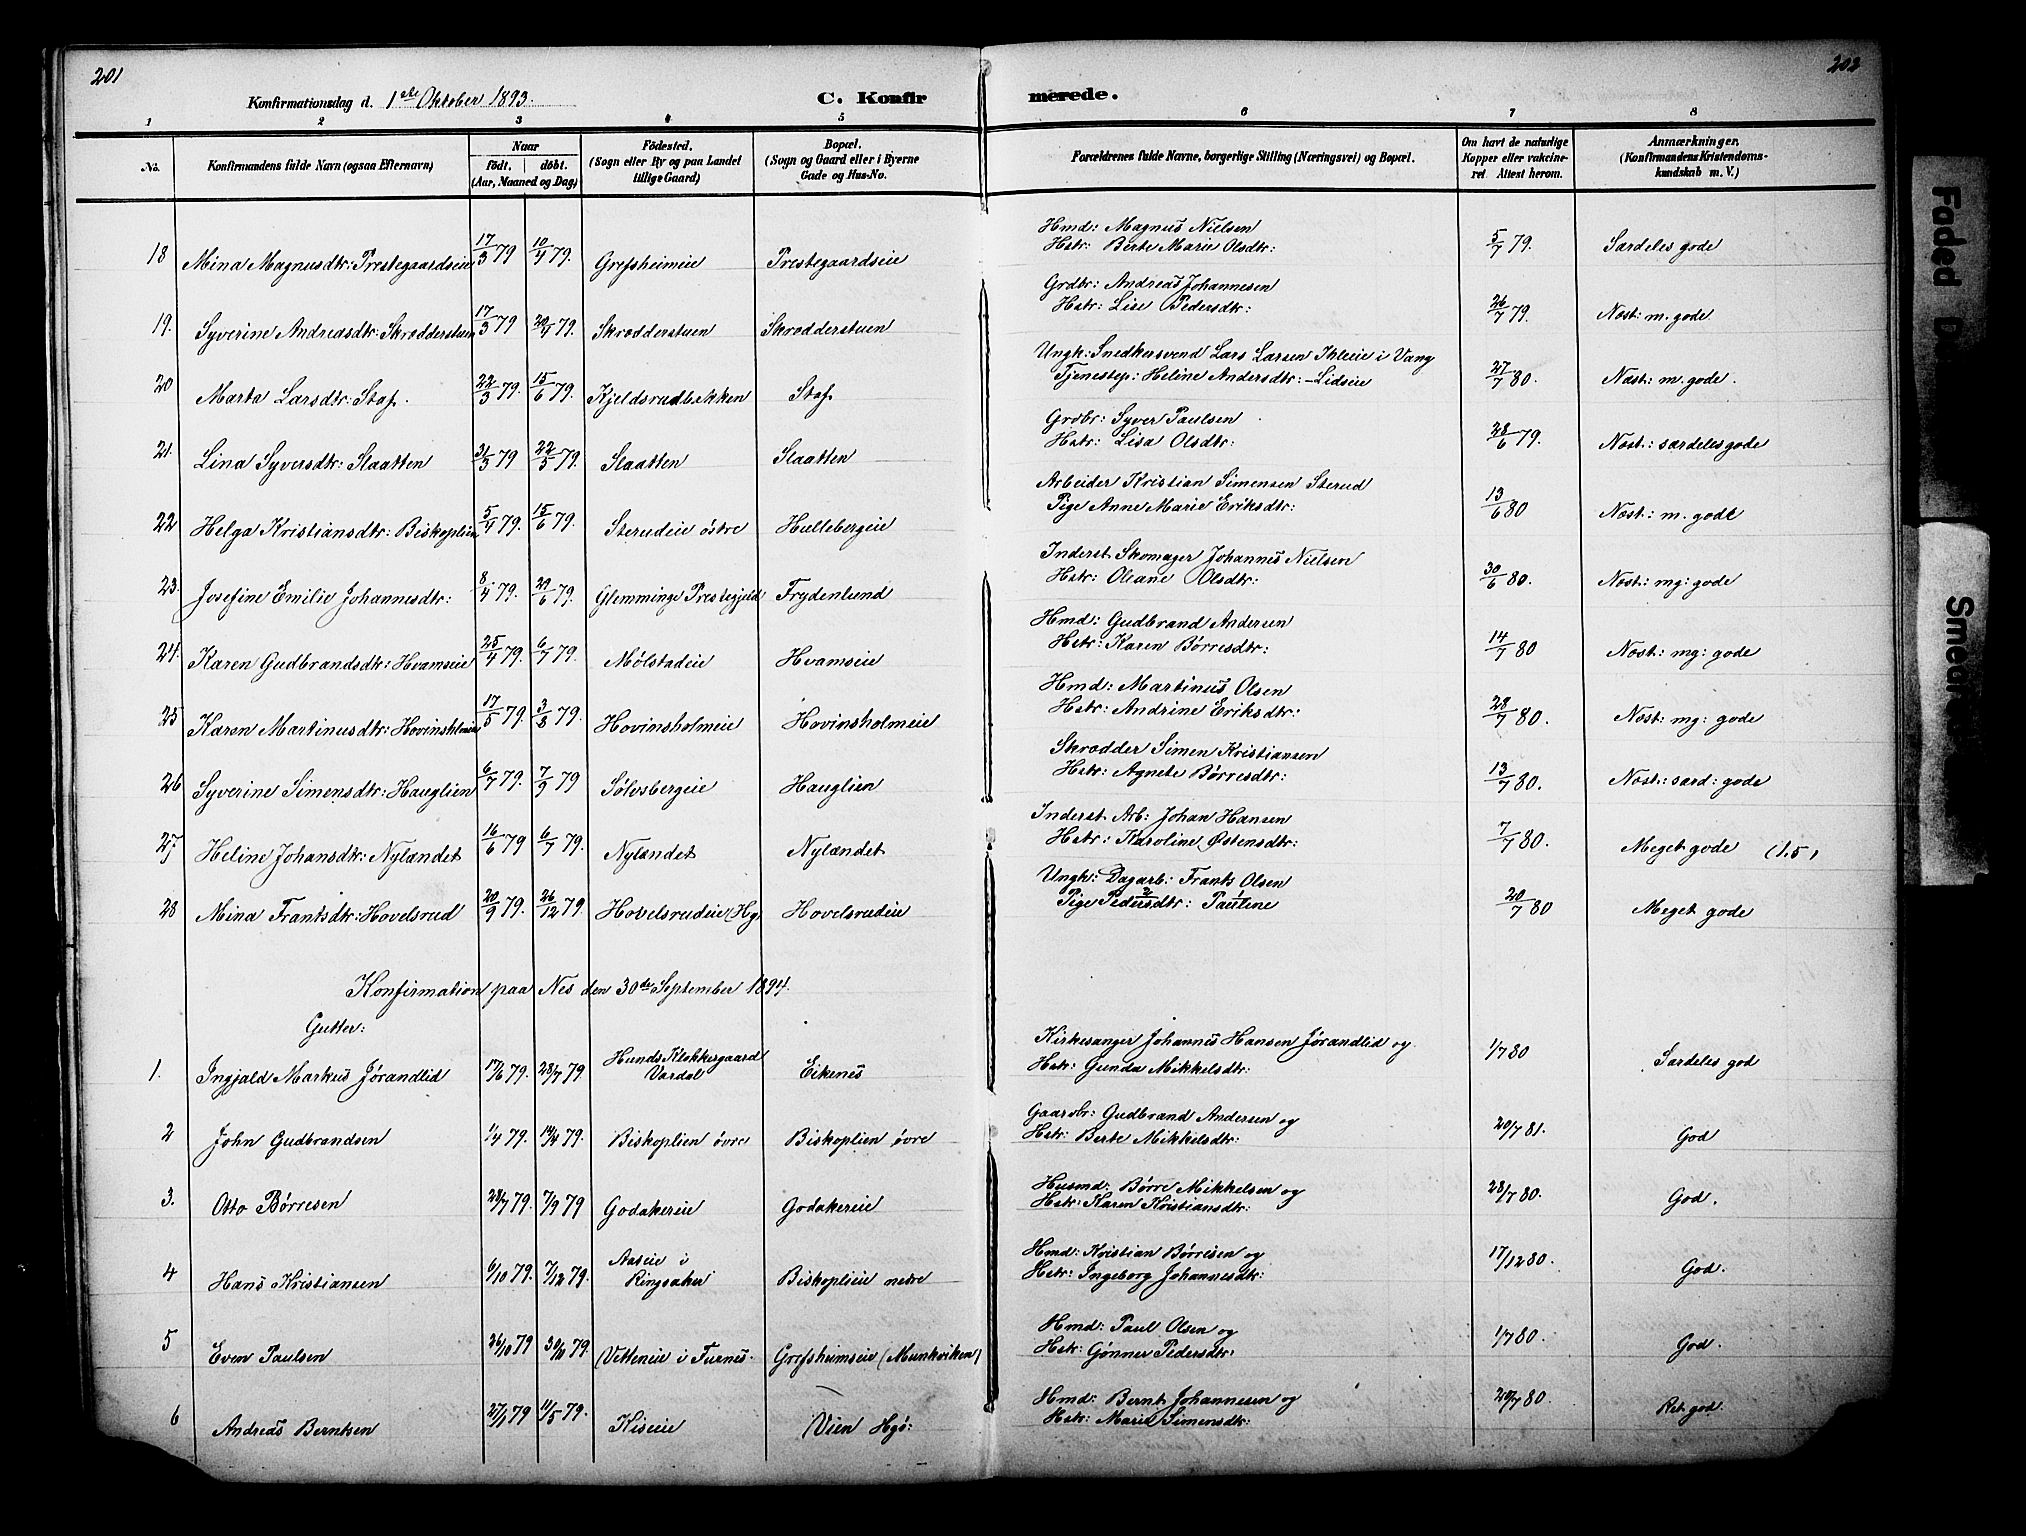 201
202
Konfirmationsdag d. 1ste Oktober 1893.
C. Konfir
merede.
1 2 3 4 5 6 7 8
No.
Konfirmandens fulde Navn (ogsaa Efternavn)
Naar
født, døbt.
(Aar, Maaned og Dag)
Fødested.
(Sogn eller By og paa Landet
tillige Gaard)
Bopæl.
(Sogn og Gaard eller i Byerne
Gade og Hus-No.
Forældrenes fulde Navne, borgerlige Stilling (Næringsvei) og Bopæl.
Om havt de naturlige
Kopper eller vakcine-
ret Attest herom.
Anmærkninger.
(Konfirmandens Kristendoms-
kundskab m. V.)
18 Mina Magnusdtr: Prestegaardseie 17/3 79 10/4 79. Grefsheimeie Prestegaardseie Hmd: Magnus Nielsen
Hstr: Berte Marie Olsdtr: 5/7 79. Særdeles gode
19. Syverine Andreasdtr: Skrædderstuen 17/3 79 20/4 79. Skrædderstuen Skrædderstuen Grdbr: Andreas Johannesen
Hstr: Lise Pedersdtr: 26/7 79. Næst: m. gode.
20 Marta Larsdtr: Staf. 22/3 79. 15/6 79. Kjeldsrudbakken Staf Ungk: Snedkersvend Lars Larsen Ihleeie i Vang
Tjenestep: Heline Andersdtr: Lidseie 27/7 80. Næst: m. gode.
21. Lina Syversdtr: Slaatten 31/3 79 22/5 79. Slaatten Slaatten Grdbr: Syver Paulsen
Hstr: Lisa Olsdtr: 28/6 79. Næst: særdeles gode
22 Helga Kristiansdtr: Biskoplien 5/4 79. 15/6 79. Sterudeie østre Hullebergeie Arbeider Kristian Simensen Sterud
Pige Anne Marie Eriksdtr: 13/6 80 Næst: m. godt
23. Josefine Emilie Johannesdtr: 8/4 79. 29/6 79. Glemminge Prestegjeld Frydenlund Inderst Skomager Johannes Nielsen
Hstr: Oleane Olsdtr: 30/6 80. Næst: mg: gode
24. Karen Gudbrandsdtr: Hvamseie 25/4 79. 6/7 79. Mølstadeie Hvamseie Hmd: Gudbrand Andersen
Hstr: Karen Børresdtr: 14/7 80 Næst: mg: gode
25 Karen Martinusdtr: Hovinsholmeie 17/5 79. 3/8 79. Hovinsholmeie Hovinsholmeie Hmd: Martinus Olsen
Hstr: Andrine Eriksdtr: 28/7 80. Næst: mg: gode
26 Syverine Simensdtr: Hauglien 6/7 79. 7/9 79 Sølvsbergeie Hauglien Skrædder Simen Kristiansen
Hstr: Agnete Børresdtr: 13/7 80. Næst: særd: gode
27 Heline Johansdtr: Nylændet 16/6 79 6/7 79. Nylændet Nylændet Inderst Arb: Johan Hansen
Hstr: Karoline Østensdtr: 7/7 80. Meget gode (1.5)
28 Mina Frantsdtr: Hovelsrud 20/9 79. 26/12 79. Hovelsrudeie (Hg. Hovelsrudeie Ungk: Dagarb: Frants Olsen
Pige Pedersdtr: Pauline 20/7 80 Meget gode
Konfirmation paa Nes den 30de September 1894.
Gutter:
1. Ingjald Markus Jørandlid 17/6 79. 28/7 79 Hunds Klokkergaard
Vardal Eikenes Kirkesanger Johannes Hansen Jørandlid og
Hstr: Gunda Mikkelsdtr: 1/7 80 Særdeles god
2 John Gudbrandsen 1/4 79. 14/4 79. Biskoplien øvre Biskoplien øvre Gaardbr: Gudbrand Andersen og
Hstr: Berte Mikkelsdtr: 20/7 81. God
3. Otto Børresen 28/7 79. 7/9 79 Godakereie Godakereie Husmd: Børre Mikkelsen og
Hstr: Karen Kristiansdtr: 28/7 80. God.
4 Hans Kristiansen 6/10 79. 7/12 79. Aaseie i
Ringsaker Biskoplieie nedre Hmd: Kristian Børresen og
Hstr: Ingeborg Johannesdtr: 17/12 80. God.
5 Even Paulsen 26/10 79 30/11 79. Vetteneie i Furnes. Grefsheimseie (Munkviken) Hmd: Paul Olsen og
Hstr: Gønner Pedersdtr: 1/7 80. God.
6 Andreas Berntsen 27/1 79 11/5 79. Kiseie Vien Hgø: Hmd: Bernt Johannesen og
Hstr: Marie Simensdtr: 20/7 80. Ret god
Faded
Smear